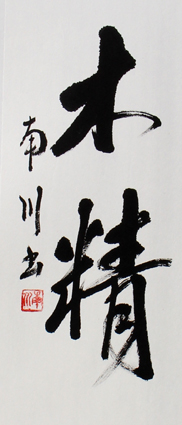 木精
南川书